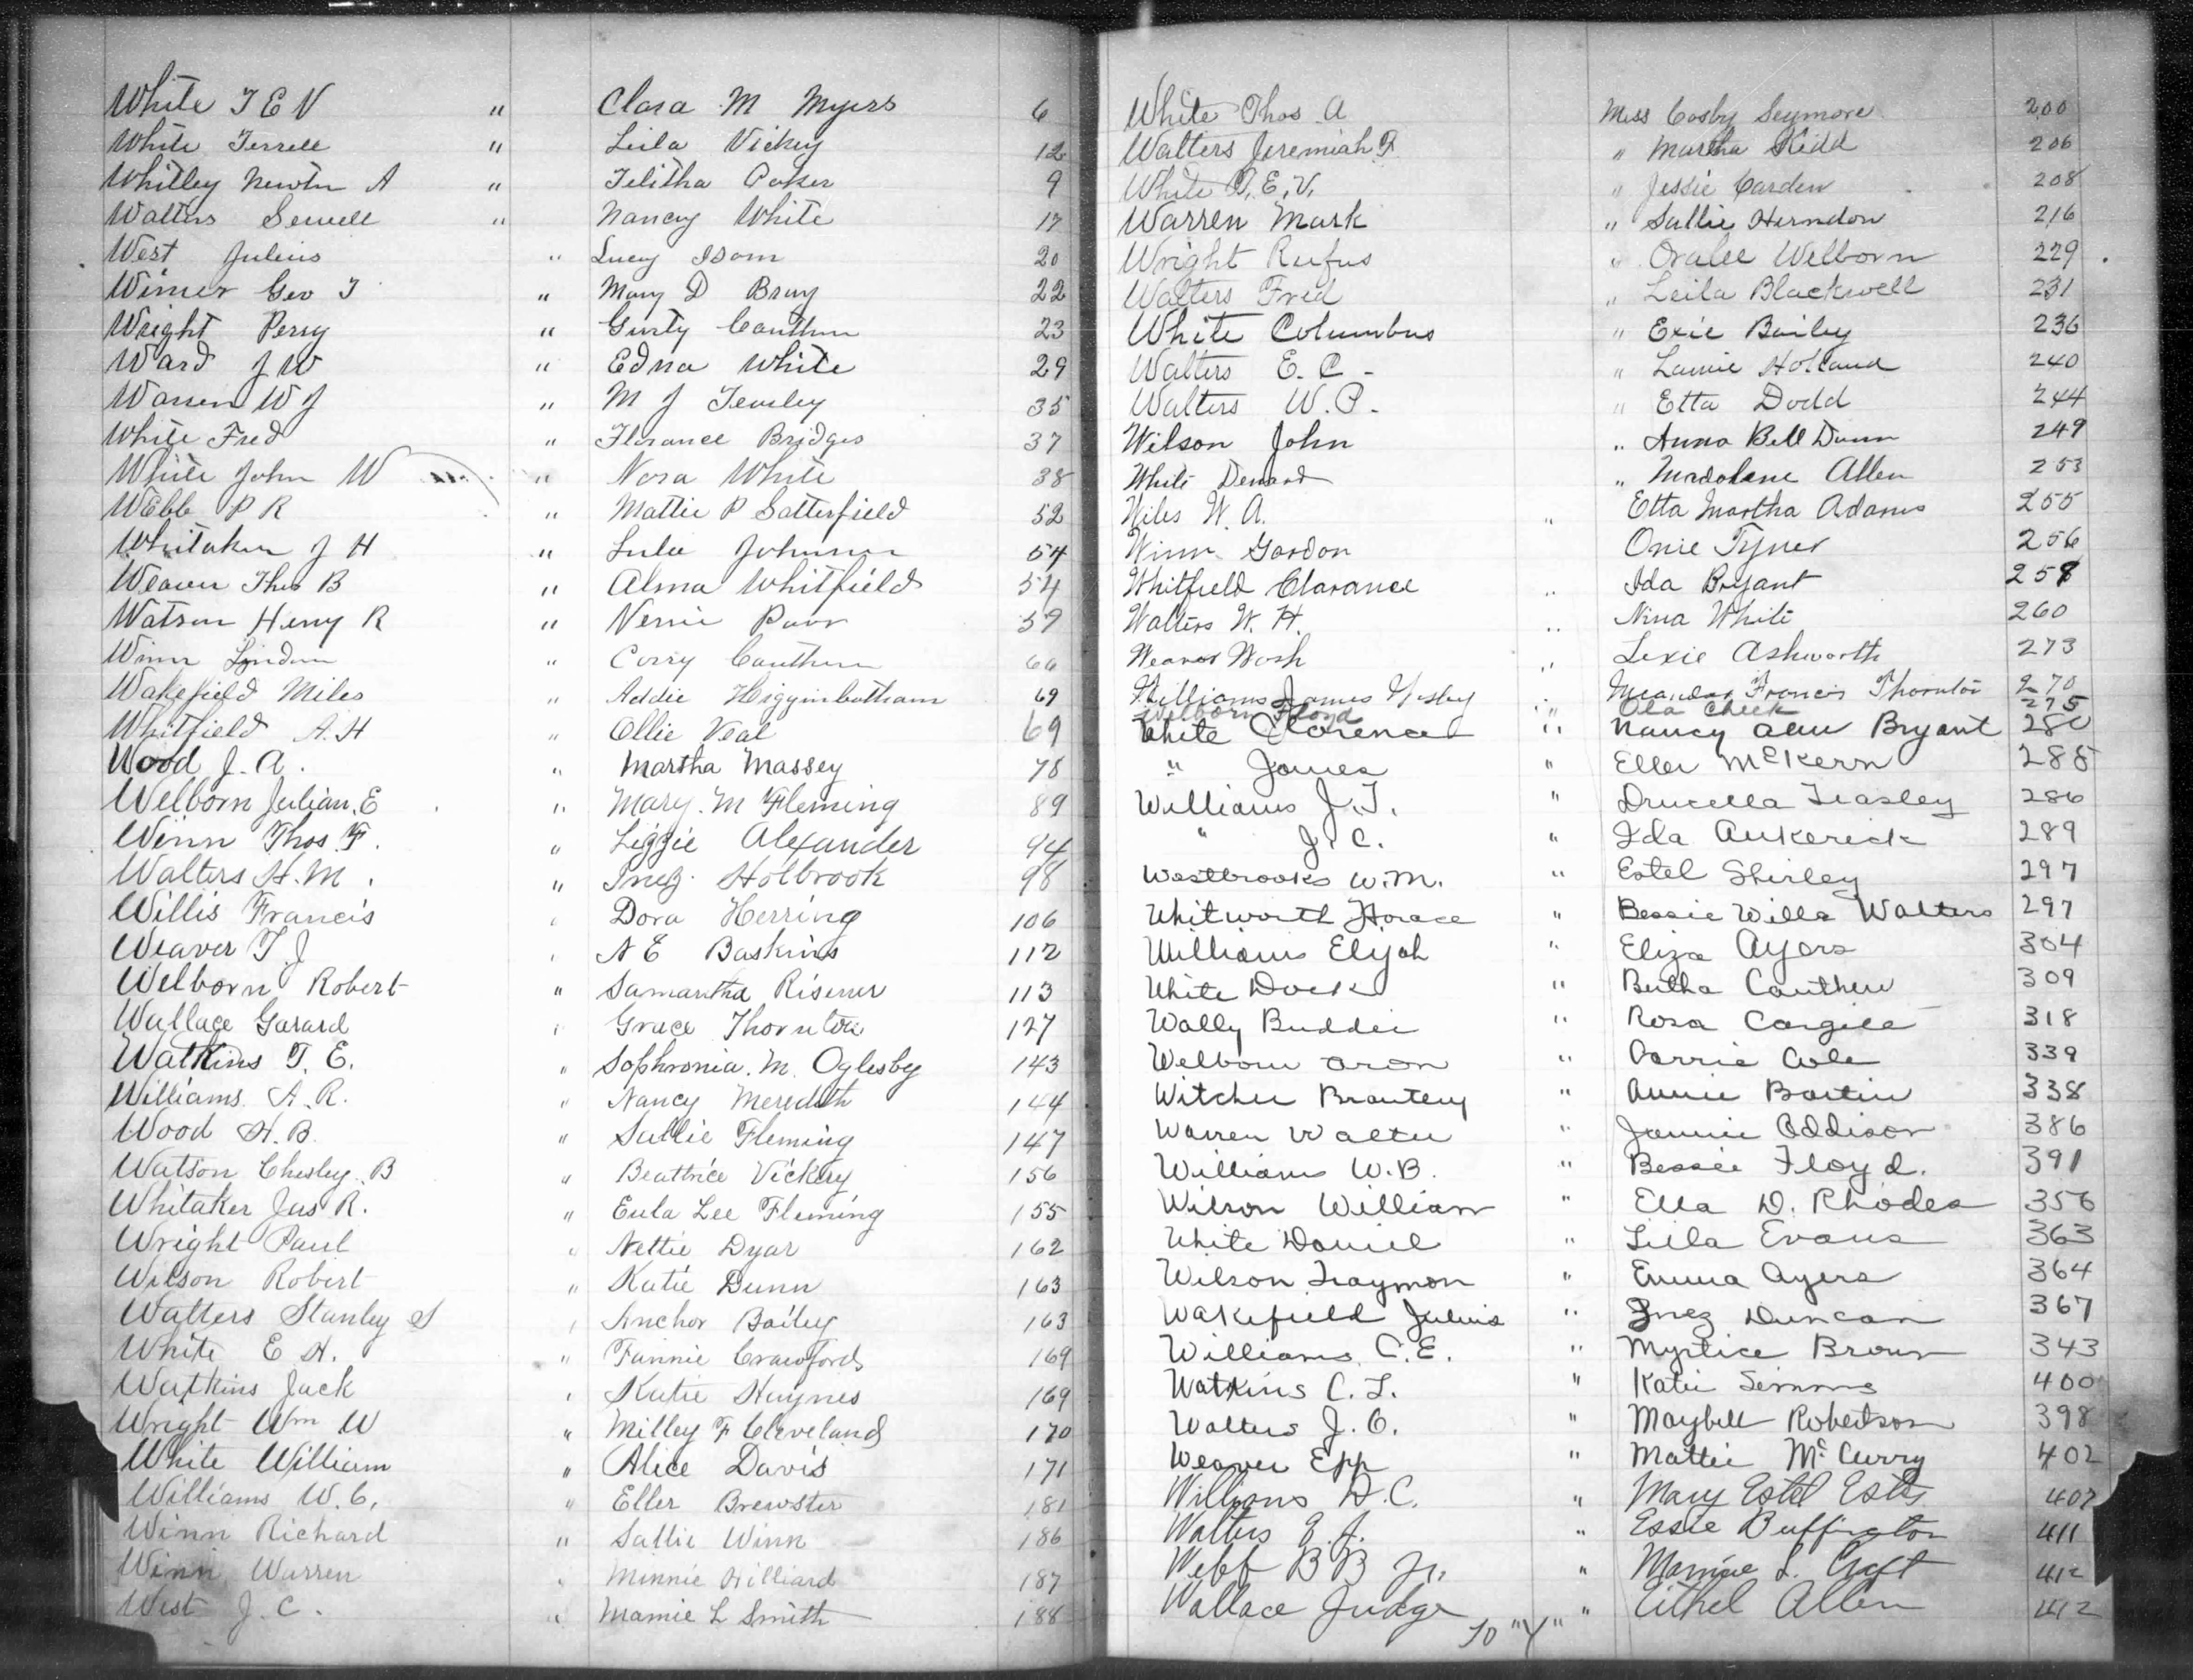 White T E V " Clara M Myers 6
White Terrell " Leila Vickey 12
Whitley Newton A " Telitha 9
Walters Sewell " Nancy White 17
West Julius " Lucy Isom 20
Wimer Geo T " Mary D Bray 22
Wright Perry " Gusty Cauthen 23
Ward J W " Edna White 29
Warren W J " M J Teasley 35
White Fred " Florance Bridges 37
White John W " Nora White 38
Webb P R " Mattie P Satterfield 52
Whitaker J H " Lula Johnson 54
Weaver Thos B " Alma Whitfield 54
Watson Henry R " Nernie 59
Winn Lindon " Corry Cauthen
Wakefield Miles " Addie Higginbotham 69
Whitfield A. H " Ollie Veal 69
Wood J. A. " Martha Massey 78
Welborn Julian. E " Mary. M Fleming 89
Winn Thos. F. " Lizzie Alexander 94
Walters H. M. " Inez. Holbrook 98
Willis Francis " Dora Herring 106
Weaver T. J " N E Baskins 112
Welborn Robert " Samantha Risener 113
Wallace Garard " Grace Thornton 127
Watkins T. E. " Sophronia. M. Oglesby 143
Williams. A. R. " Nancy Meredith 144
Wood H. B. " Sallie Fleming 147
Watson Chesley. B " Beattrice Vickery 156
Whitaker Jas R. " Eula Lee Fleming 155
Wright Paul " Nettie Dyar 162
Wilson Robert " Katie Dunn 163
Walters Stanley S " Anchor Bailey 163
White E H. " Fannie Crawford 169
Watkins Jack " Katie Haynes 169
Wright Wm W " Milley F Cleveland 170
White William " Alice Davis 171
Williams W. C. " Eller Brewster 181
Winn Richard " Sallie Winn 186
Winn Warren " Minnie Hilliard 187
West J. C. " Mamie L Smith 188
White Thos A Miss Cosby Seymore 200
Walters Jeremiah F. " Martha Kidd 206
White T. E. V. " Jessie Carden 208
Warren Mark " Sallie Herndon 216
Wright Rufus " Oralee Welborn 229
Walters Fred " Leila Blackwell 231
White Columbus " Exie Bailey 236
Walters E. C - " Lannie Holland 240
Walters W. P. " Etta Dodd 244
Wilson John " Anna Bell Dunn 249
White Denard " Madolane Allen 253
Wiles W. A. " Etta Martha Adams 255
Winn Gordon Onie Tyner 256
Whitfield Clarance " Ida Bryant 258
Walters W. H. " Nina White 260
Weaver Wash " Lexie Ashworth 273
Williams James Wesley " Francis Thornton 270
Welborn Floyd " Ola Cheek 275
White Clarence " Nancy Ann Bryant 280
" James " Eller McKern 285
Williams J. T. " Drucella Teasley 286
" J. C. " Ida Aukerick 289
Westbrooks W. M. " Estel Shirley 297
Whitworth Horace " Bessie Willa Walters 297
Williams Elijah " Eliza Ayers 304
White Dock " Bertha Cauthen 309
Wally Buddie " Rosa Cargile 318
Welborn Aron " Carrie Cole 339
Witcher Brantery " Annie Bartin 338
Warren Walter " Jannie Addison 386
Williams W. B. " Bessie Floyd. 391
Wilson William " Ella D. Rhodes 356
White Daniel " Lilla Evans 363
Wilson Traymon " Emma Ayers 364
Wakefield Julius " Inez Duncan 367
Williams. C. E. " Myrtice Brown 343
Watkins C. L. " Katie Simms 400
Walters J. O. " Maybell Robertson 398
Weaver Epp " Mattie McCurry 402
Williams D. C. " Mary Estel Estes 407
Walters E. J. " Essie Buffington 411
Webb B B Jr. " Mamie L. Craft 412
Wallace Judge " Eithel Allen 412
To "Y"